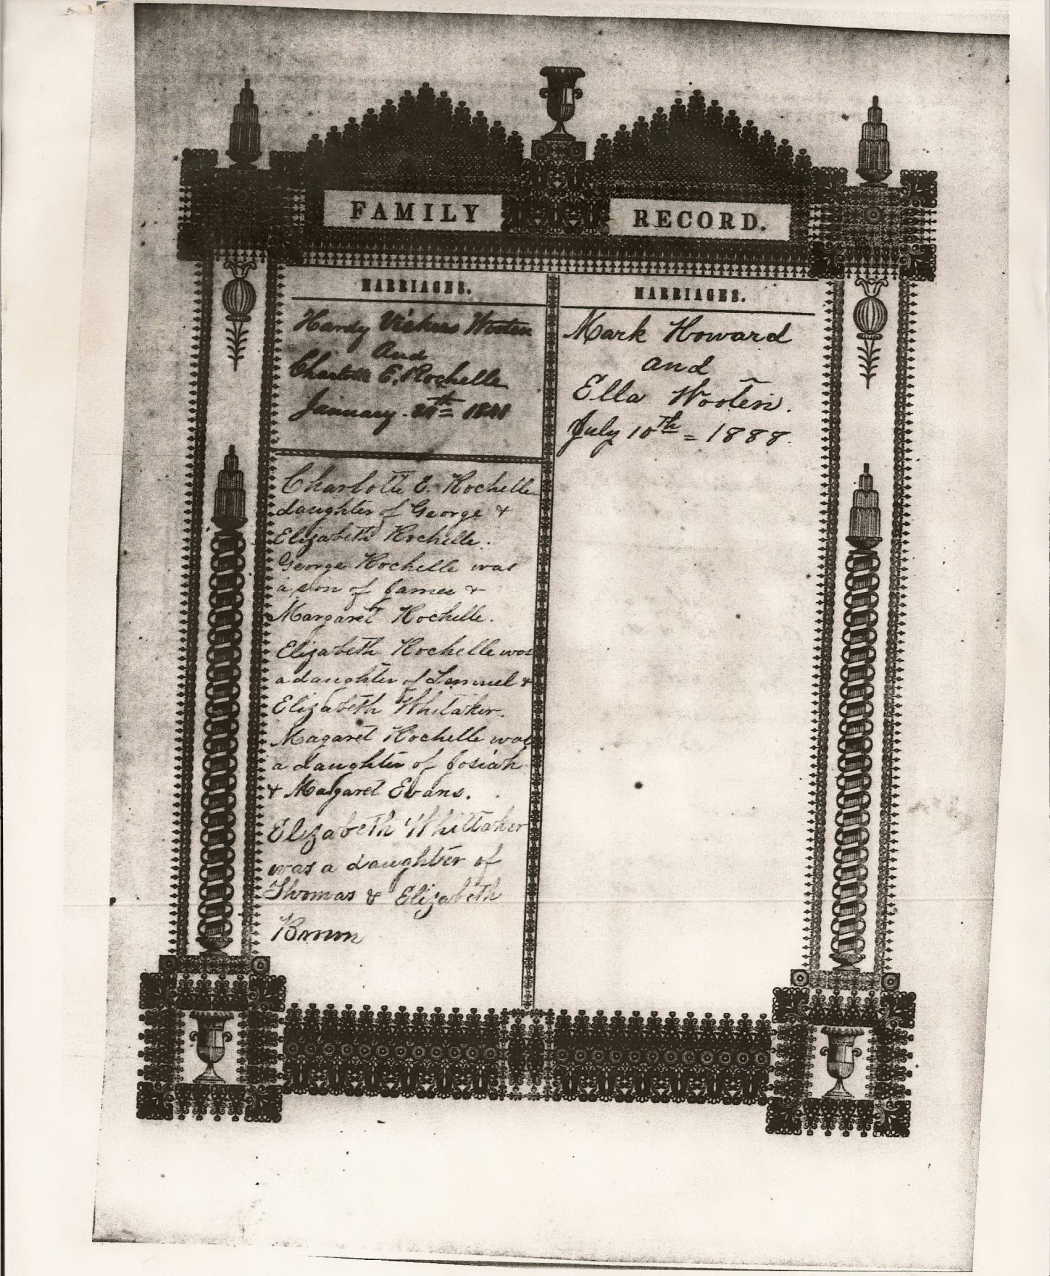 FAMILY RECORD.
MARRIAGES.
Hardy Vickers Wooten
And
Charlotte E. Rochelle
January
Charlotte E. Rochelle
daughter of George &
Elizabeth Rochelle.
George Rochelle was
a son of James &
Margaret Rochelle.
Elizabeth Rochelle was
a daughter of Lemuel &
Elizabeth Whitaker.
Magaret Rochelle was
a daughter of Josiah
& Magaret Evans.
Elizabeth Whittaker
was a daughter of
Thomas & Elizabeth
MARRIAGES.
Mark Howard
and
Ella Wooten.
July 10th = 1888.